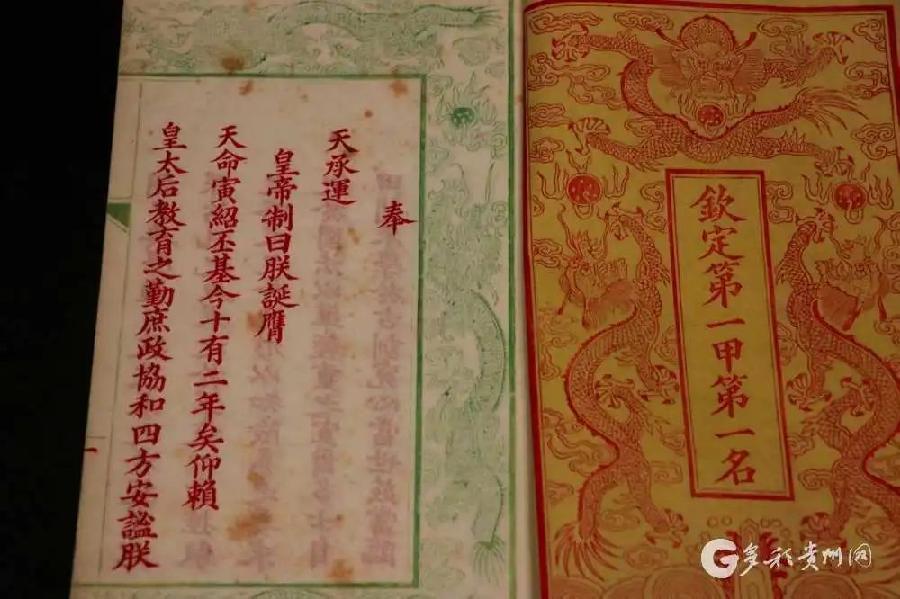 欽定第一甲第一名
奉
天承運
皇帝制曰朕誕膺
天命寅紹丕基今十有二年矣仰賴
皇太后教育之勤庶政協和四方安謐朕
多彩贵州网